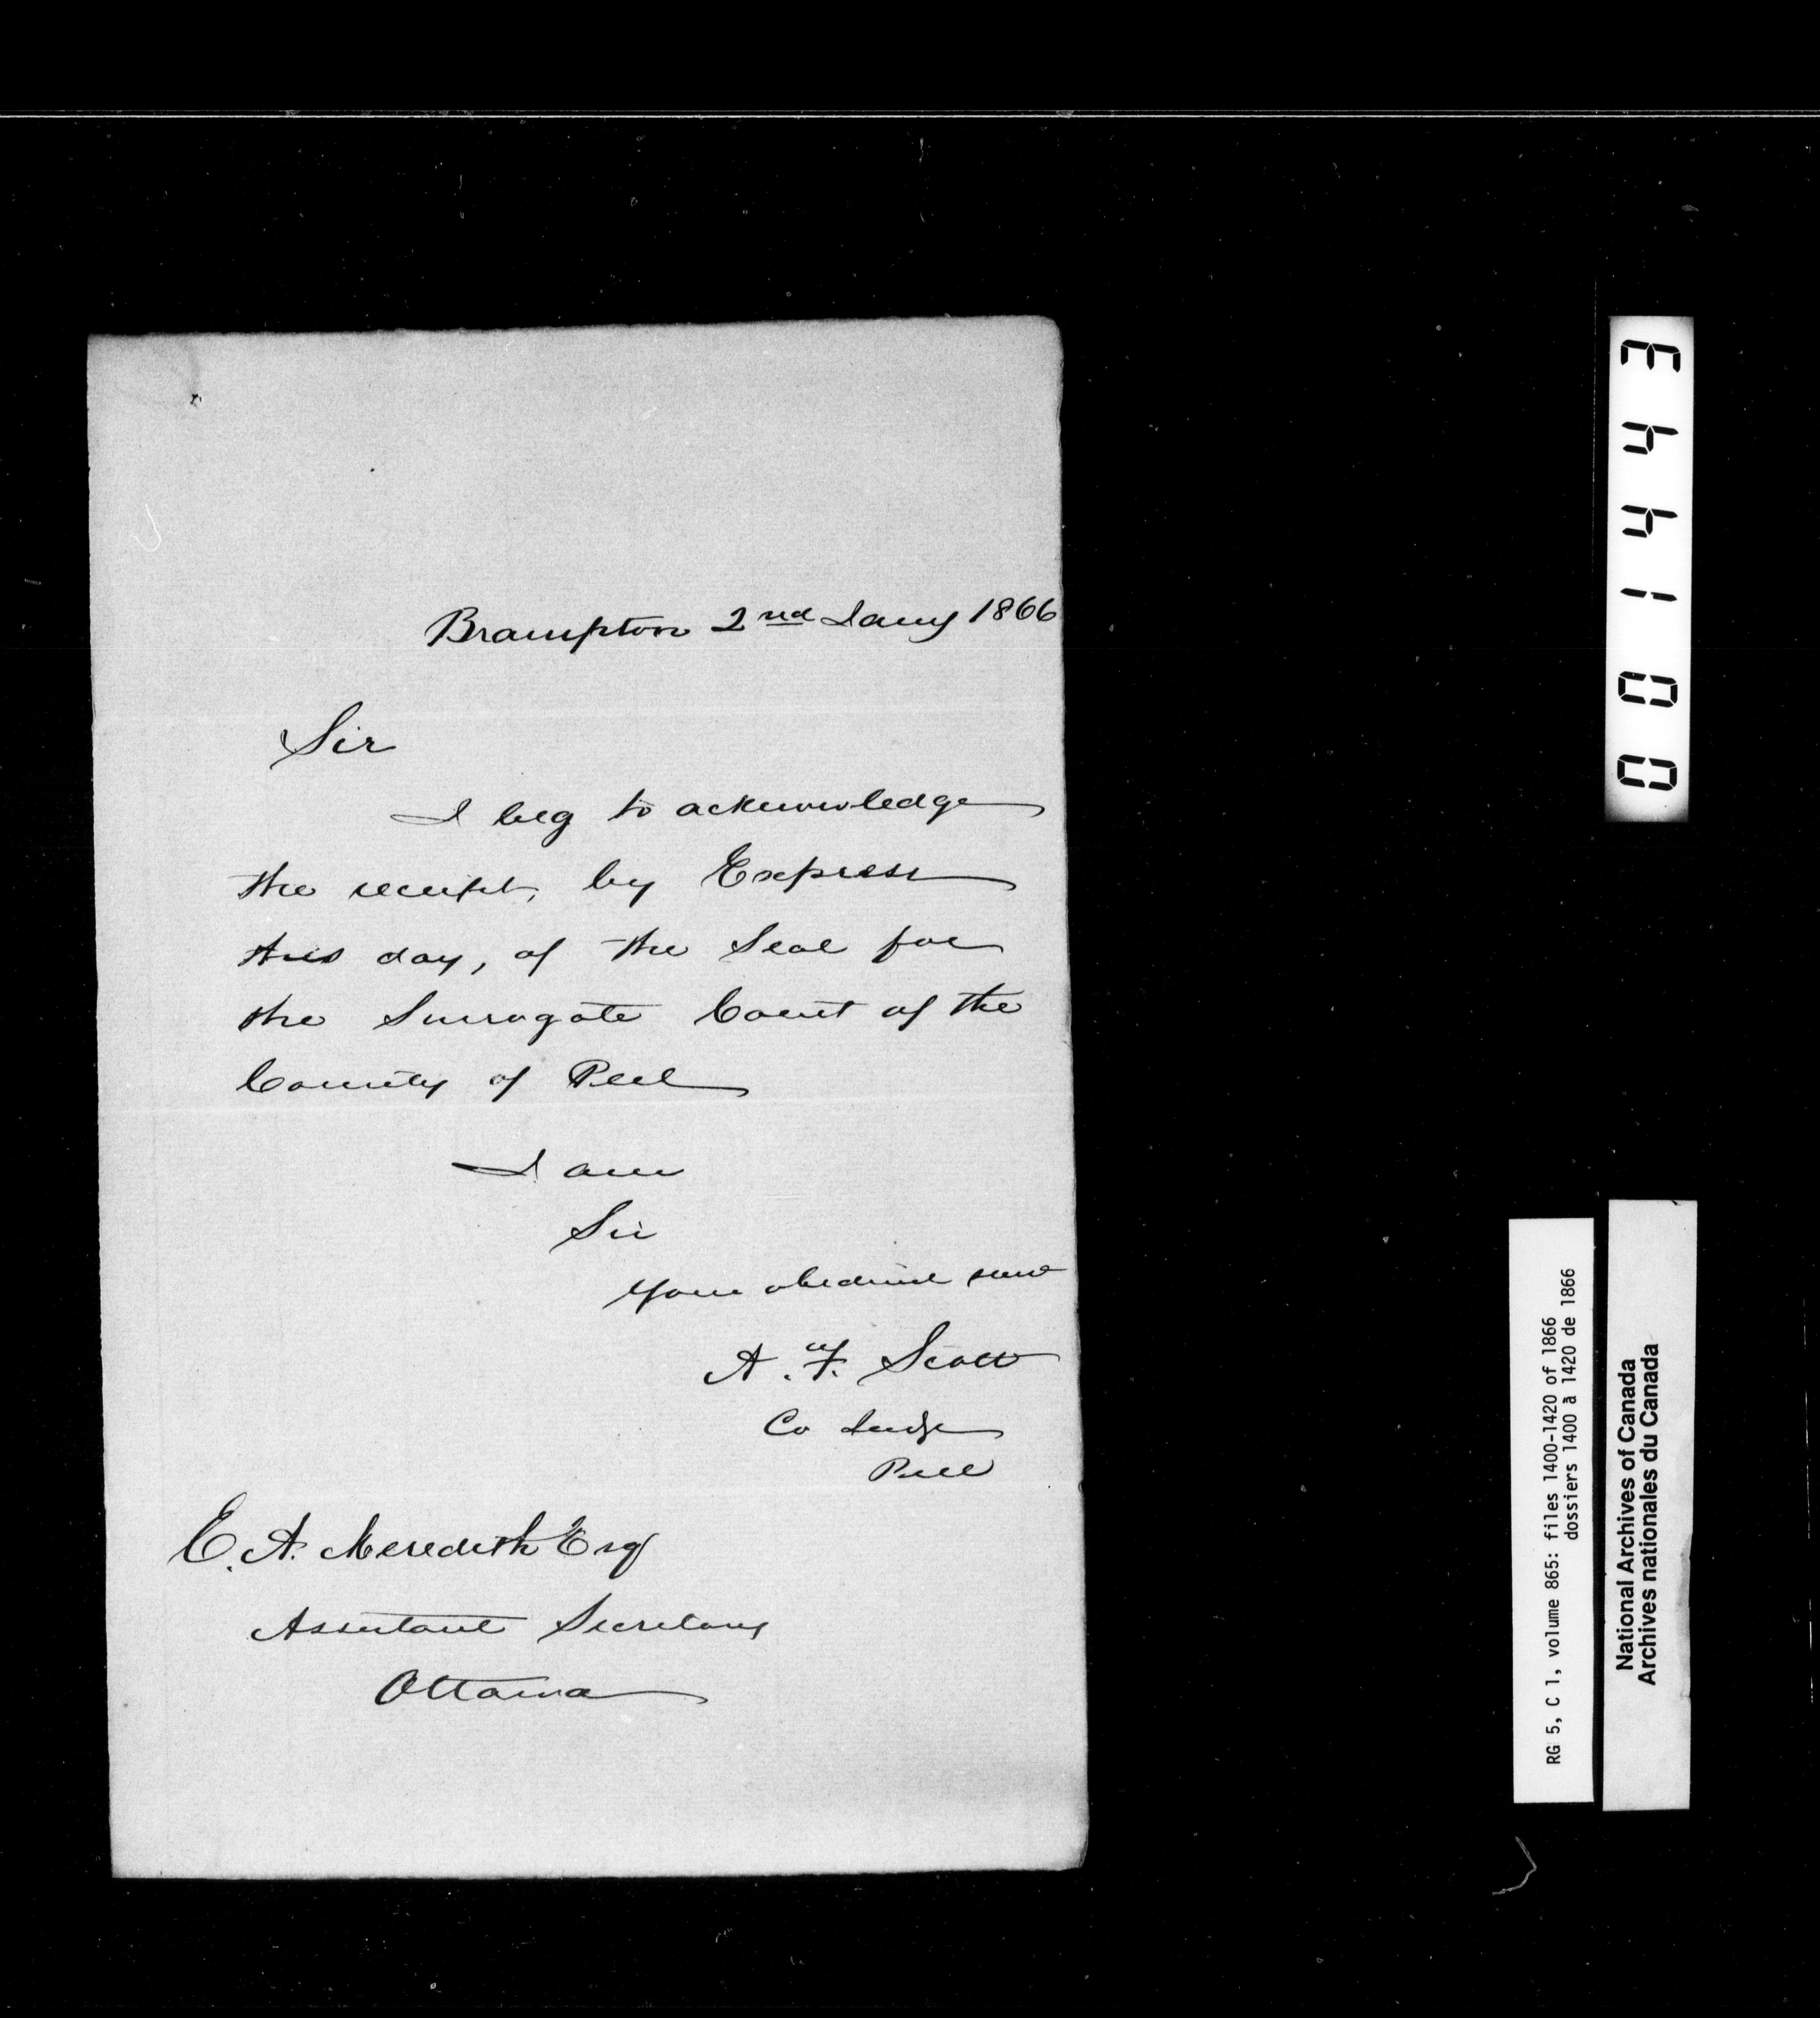 Brampton 2nd Jany 1866
Sir
I beg to acknowledge
the receipt, by Express
this day, of the Seal for
the Surrogate Court of the
County of Peel
I am
Sir
Your obedient servt
A. F. Scott
Co Judge
Peel
E. A. Meredith Esq
Assistant Secretary
Ottawa
001443
RG 5, C 1, volume 865: files 1400-1420 of 1866
dossiers 1400 à 1420 de 1866
National Archives of Canada
Archives nationales du Canada